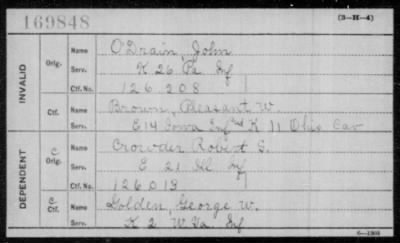 169848 (3-H-4)
INVALID
Orig. Name O'Drain, John
Serv. K 26 Pa Inf
Ctf. No. 126 208
Ctf. Name Brown, Pleasant W.
Serv. E 14 Iowa Inf and K 11 Ohio Cav
DEPENDENT
C Orig. Name Crowder Robert S.
Serv. E 21 Ill Inf
Ctf. No. 126 013
C. Ctf. Name Golden, George W.
Serv. K 2 W.Va. Inf